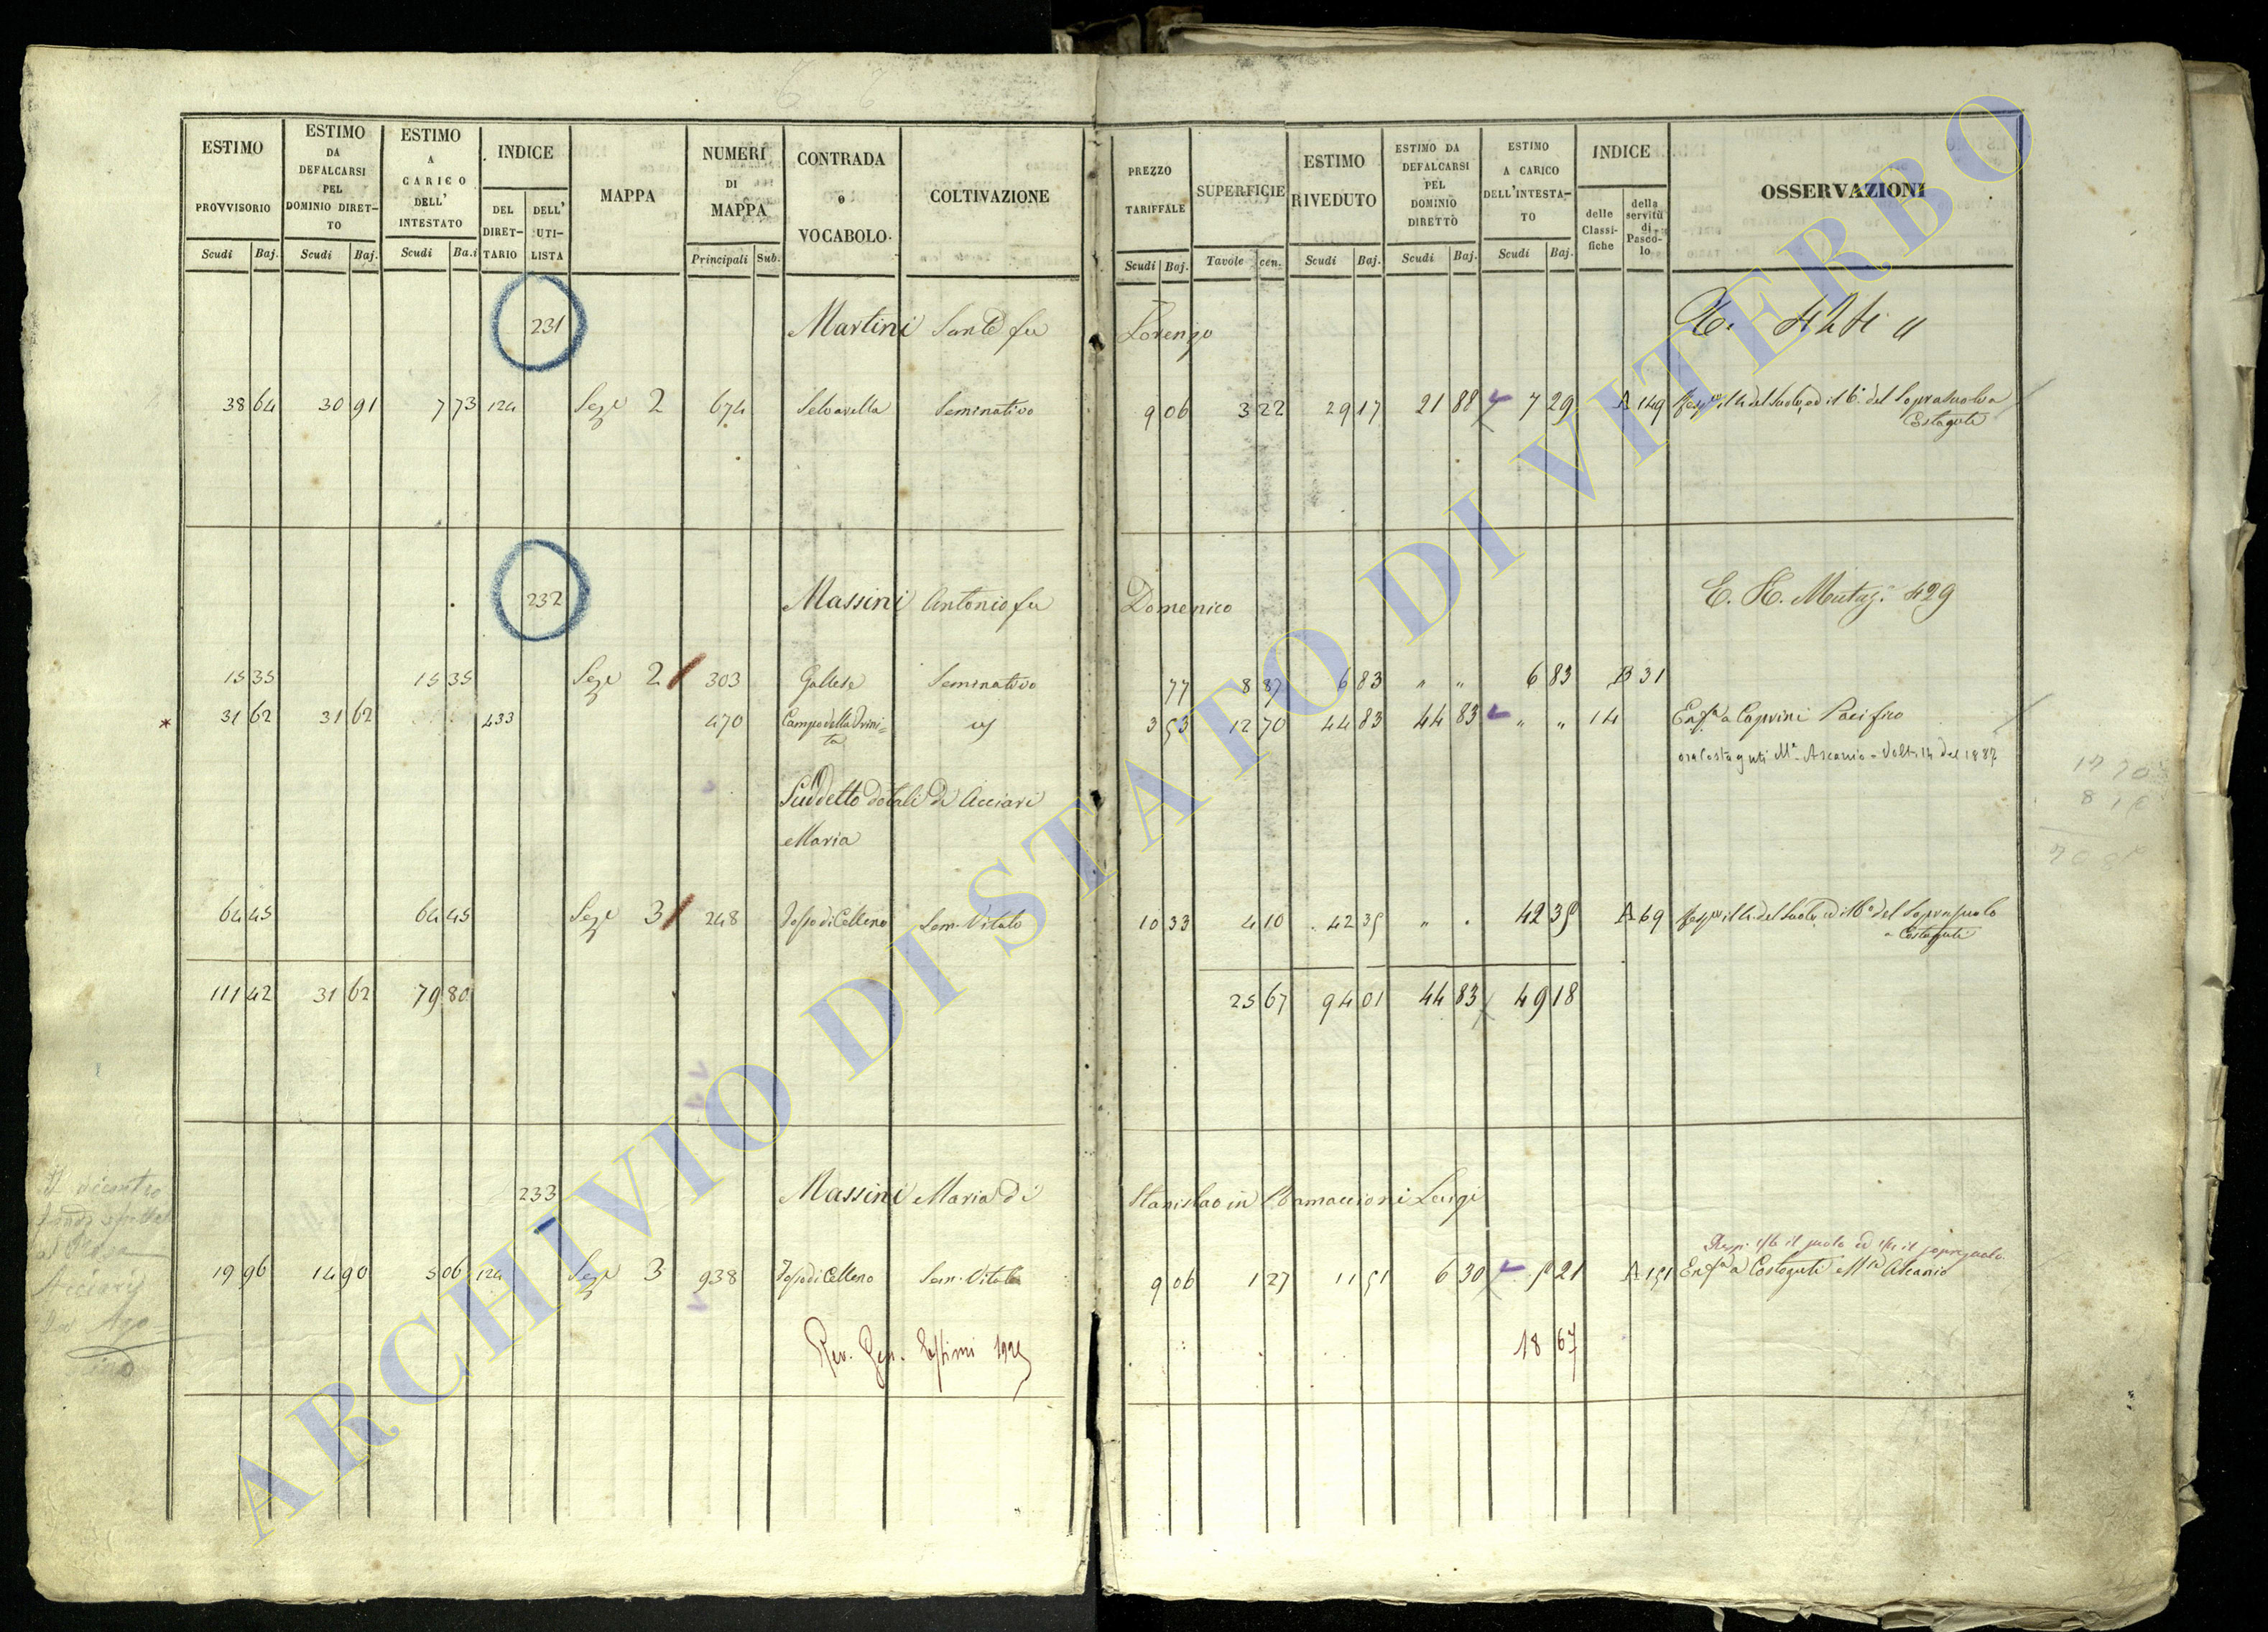 ESTIMO PROVVISORIO Scudi Baj.
ESTIMO DA DEFALCARSI PEL DOMINIO DIRET-TO Scudi Baj.
ESTIMO A CARICO DELL' INTESTATO Scudi Ba.i
INDICE DEL DIRET-TARIO DELL' UTI-LISTA
MAPPA
NUMERI DI MAPPA Principali Sub.
CONTRADA o VOCABOLO.
COLTIVAZIONE
PREZZO TARIFFALE Scudi Baj.
SUPERFICIE Tavole cen.
ESTIMO RIVEDUTO Scudi Baj.
ESTIMO DA DEFALCARSI PEL DOMINIO DIRETTO Scudi Baj.
ESTIMO A CARICO DELL'INTESTA-TO Scudi Baj.
INDICE delle Classi-fiche della servitù di Pasco-lo
OSSERVAZIONI
231 Martini Sante fu Lorenzo
38 64 30 91 7 73 124 Sez.e 2 674 Selvarella Seminativo 9 06 3 22 29 17 21 88 7 29 A 149 del Suolo, ed il 6.° del Soprasuolo a
Costaguti
232 Massini Antonio fu Domenico E. H. Mutaz. 429
15 35 15 35 Sez.e 2 303 Gallese Seminativo 77 8 87 6 83 " " 6 83 B 31
* 31 62 31 62 433 470 Campo della Trini-
tà 3 53 12 70 44 83 44 83 " " 14 Enf.a a Caprini Pacifico
ora Costaguti M.e Ascanio - Volt. 14 del 1887
Suddetto dotali di Acciari
Maria
64 45 64 45 Sez.e 3 248 Fosso di Celleno Sem. Vitato 10 33 4 10 42 35 " " 42 35 A 69 del Suolo, ed il 6.° del Soprasuolo
a Costaguti
111 42 31 62 79 80 25 67 94 01 44 83 49 18
233 Massini Maria di Stanislao in Ramaccioni Luigi
il suolo ed il soprasuolo
19 96 14 90 5 06 124 Sez.e 3 938 Fosso di Celleno Sem. Vitato 9 06 1 27 11 51 6 30 5 21 A 151 Enf.a a Costaguti M.se Ascanio
Rev. Gen. Estimi 18 67
Acciari
ARCHIVIO DI STATO DI VITERBO